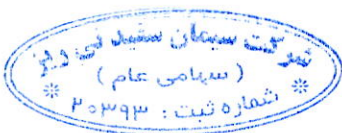 شرکت سیمان سفید نی ریز
(سهامی عام)
شماره ثبت: ۲۰۳۹۳